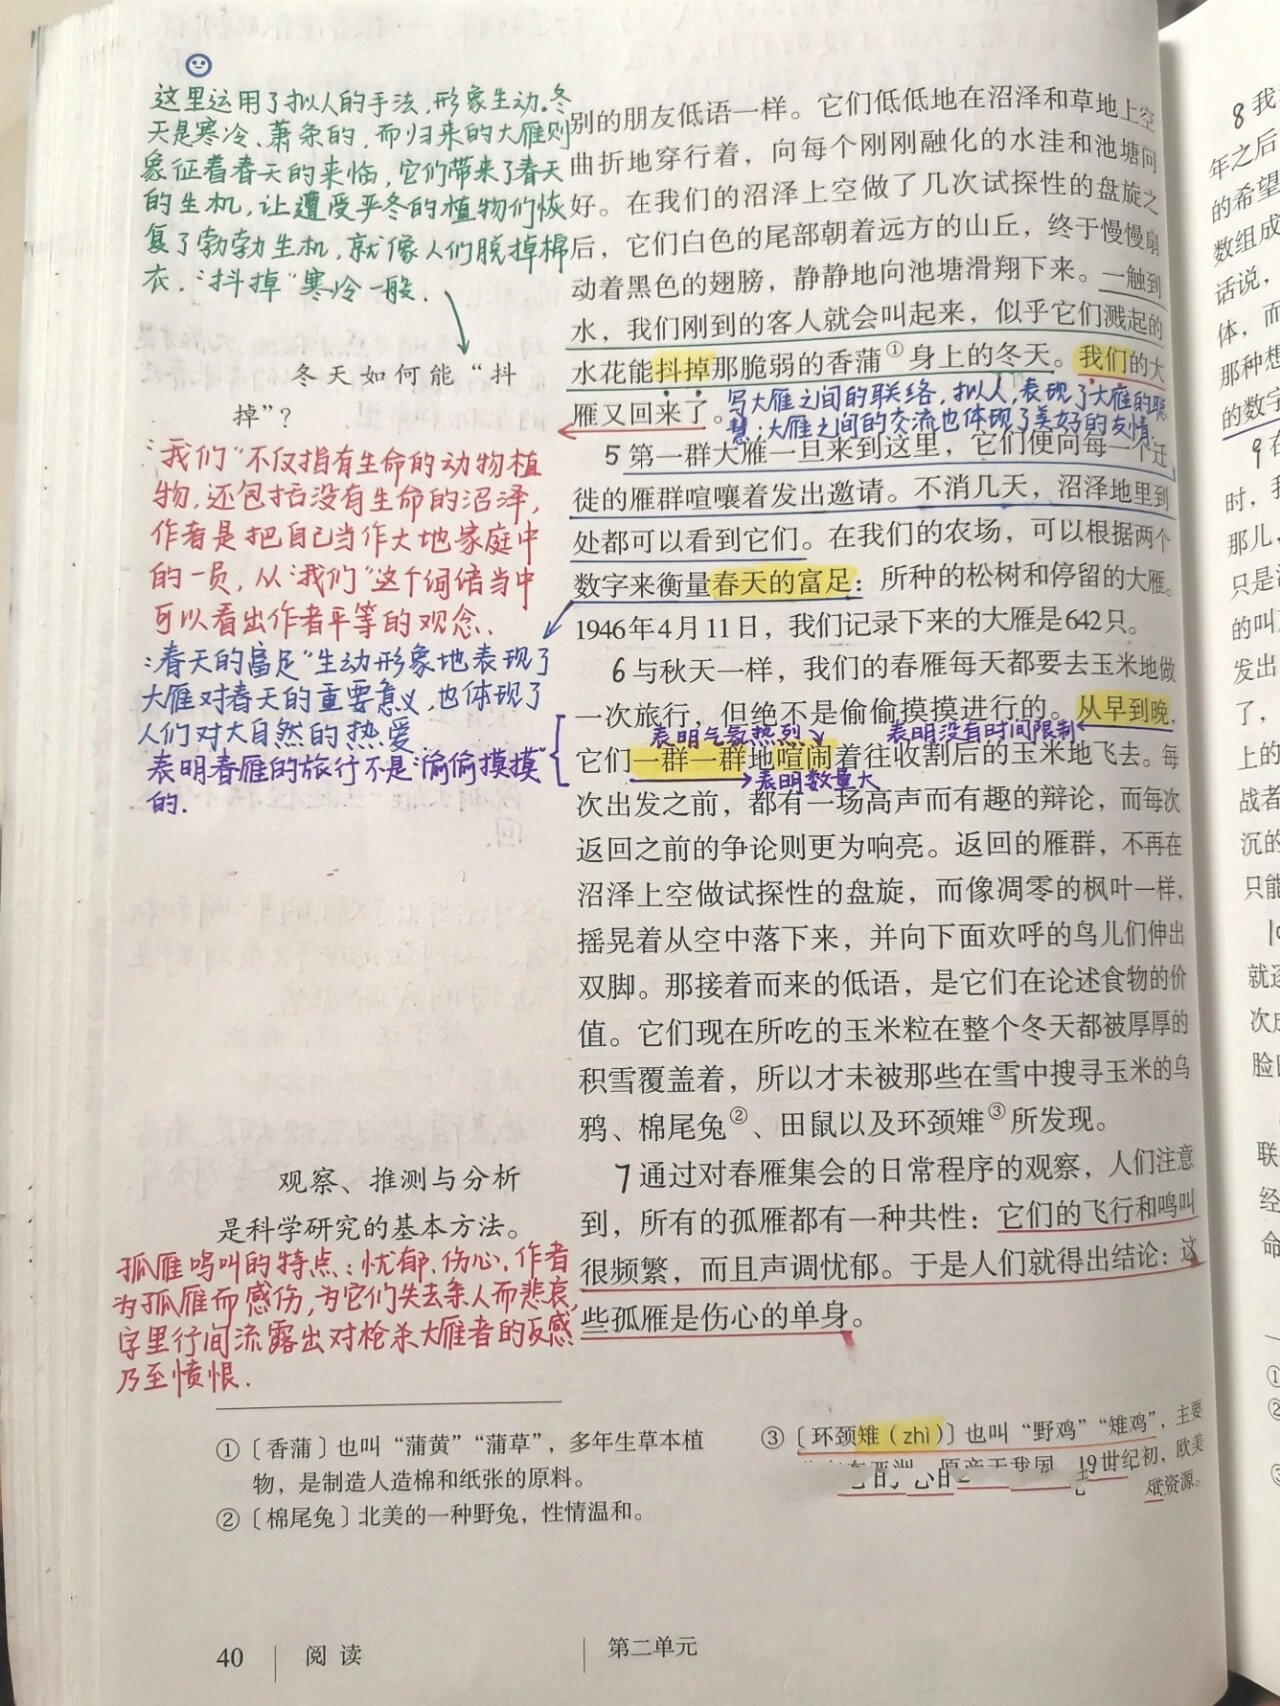 这里运用了拟人的手法,形象生动。冬
天是寒冷、萧条的,而归来的大雁则
象征着春天的来临,它们带来了春天
的生机,让遭受严冬的植物们恢
复了勃勃生机,就像人们脱掉棉
衣,“抖掉”寒冷一般.
冬天如何能“抖
掉”?
“我们”不仅指有生命的动物植
物,还包括没有生命的沼泽,
作者是把自己当作大地家庭中
的一员,从“我们”这个词语当中
可以看出作者平等的观念.
“春天的富足”生动形象地表现了
大雁对春天的重要意义,也体现了
人们对大自然的热爱
表明春雁的旅行不是“偷偷摸摸”
的.
观察、推测与分析
是科学研究的基本方法。
孤雁鸣叫的特点:忧郁、伤心,作者
为孤雁而感伤,为它们失去亲人而悲哀,
字里行间流露出对枪杀大雁者的反感
乃至愤恨.
别的朋友低语一样。它们低低地在沼泽和草地上空
曲折地穿行着,向每个刚刚融化的水洼和池塘问
好。在我们的沼泽上空做了几次试探性的盘旋之
后,它们白色的尾部朝着远方的山丘,终于慢慢扇
动着黑色的翅膀,静静地向池塘滑翔下来。一触到
水,我们刚到的客人就会叫起来,似乎它们溅起的
水花能抖掉那脆弱的香蒲①身上的冬天。我们的大
雁又回来了。
写大雁之间的联络,拟人,表现了大雁的聪
慧;大雁之间的交流也体现了美好的友情.
5 第一群大雁一旦来到这里,它们便向每一个迁
徙的雁群喧嚷着发出邀请。不消几天,沼泽地里到
处都可以看到它们。在我们的农场,可以根据两个
数字来衡量春天的富足:所种的松树和停留的大雁。
1946年4月11日,我们记录下来的大雁是642只。
6 与秋天一样,我们的春雁每天都要去玉米地做
一次旅行,但绝不是偷偷摸摸进行的。从早到晚,
表明气氛热烈 表明没有时间限制
它们一群一群地喧闹着往收割后的玉米地飞去。每
表明数量大
次出发之前,都有一场高声而有趣的辩论,而每次
返回之前的争论则更为响亮。返回的雁群,不再在
沼泽上空做试探性的盘旋,而像凋零的枫叶一样,
摇晃着从空中落下来,并向下面欢呼的鸟儿们伸出
双脚。那接着而来的低语,是它们在论述食物的价
值。它们现在所吃的玉米粒在整个冬天都被厚厚的
积雪覆盖着,所以才未被那些在雪中搜寻玉米的乌
鸦、棉尾兔②、田鼠以及环颈雉③所发现。
7 通过对春雁集会的日常程序的观察,人们注意
到,所有的孤雁都有一种共性:它们的飞行和鸣叫
很频繁,而且声调忧郁。于是人们就得出结论:这
些孤雁是伤心的单身。
①〔香蒲〕也叫“蒲黄”“蒲草”,多年生草本植
物,是制造人造棉和纸张的原料。
②〔棉尾兔〕北美的一种野兔,性情温和。
③〔环颈雉(zhì)〕也叫“野鸡”“雉鸡”,主要
19世纪初,欧美
资源。
40 阅读 第二单元
8 我
年之后
的希望
数组成
话说,
体,而
那种想
的数字
9 在
时,我
那儿,
只是
的叫
发出
了,
上的
战者
沉的
只能
10
就
次
脸
联
经
命